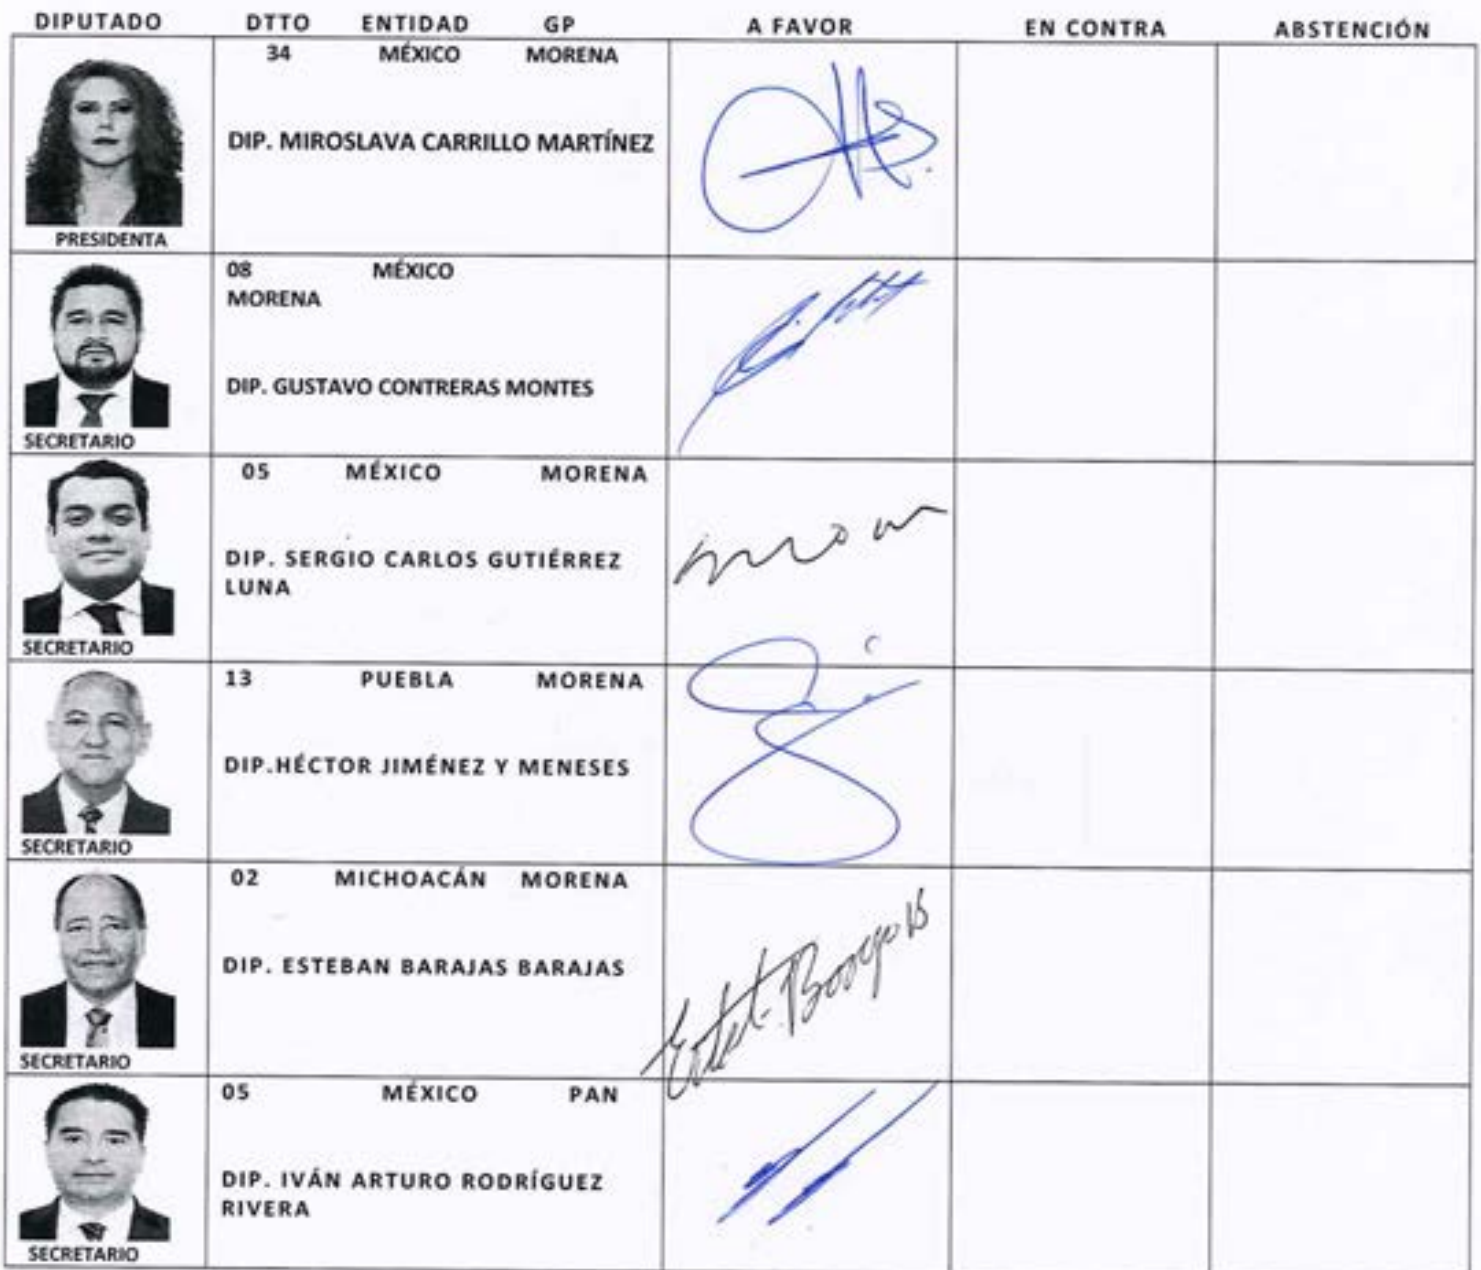 DIPUTADO DTTO ENTIDAD GP A FAVOR EN CONTRA ABSTENCIÓN
34 MÉXICO MORENA
DIP. MIROSLAVA CARRILLO MARTÍNEZ
PRESIDENTA
08 MÉXICO
MORENA
DIP. GUSTAVO CONTRERAS MONTES
SECRETARIO
05 MÉXICO MORENA
DIP. SERGIO CARLOS GUTIÉRREZ
LUNA
SECRETARIO
13 PUEBLA MORENA
DIP.HÉCTOR JIMÉNEZ Y MENESES
SECRETARIO
02 MICHOACÁN MORENA
DIP. ESTEBAN BARAJAS BARAJAS
SECRETARIO
05 MÉXICO PAN
DIP. IVÁN ARTURO RODRÍGUEZ
RIVERA
SECRETARIO